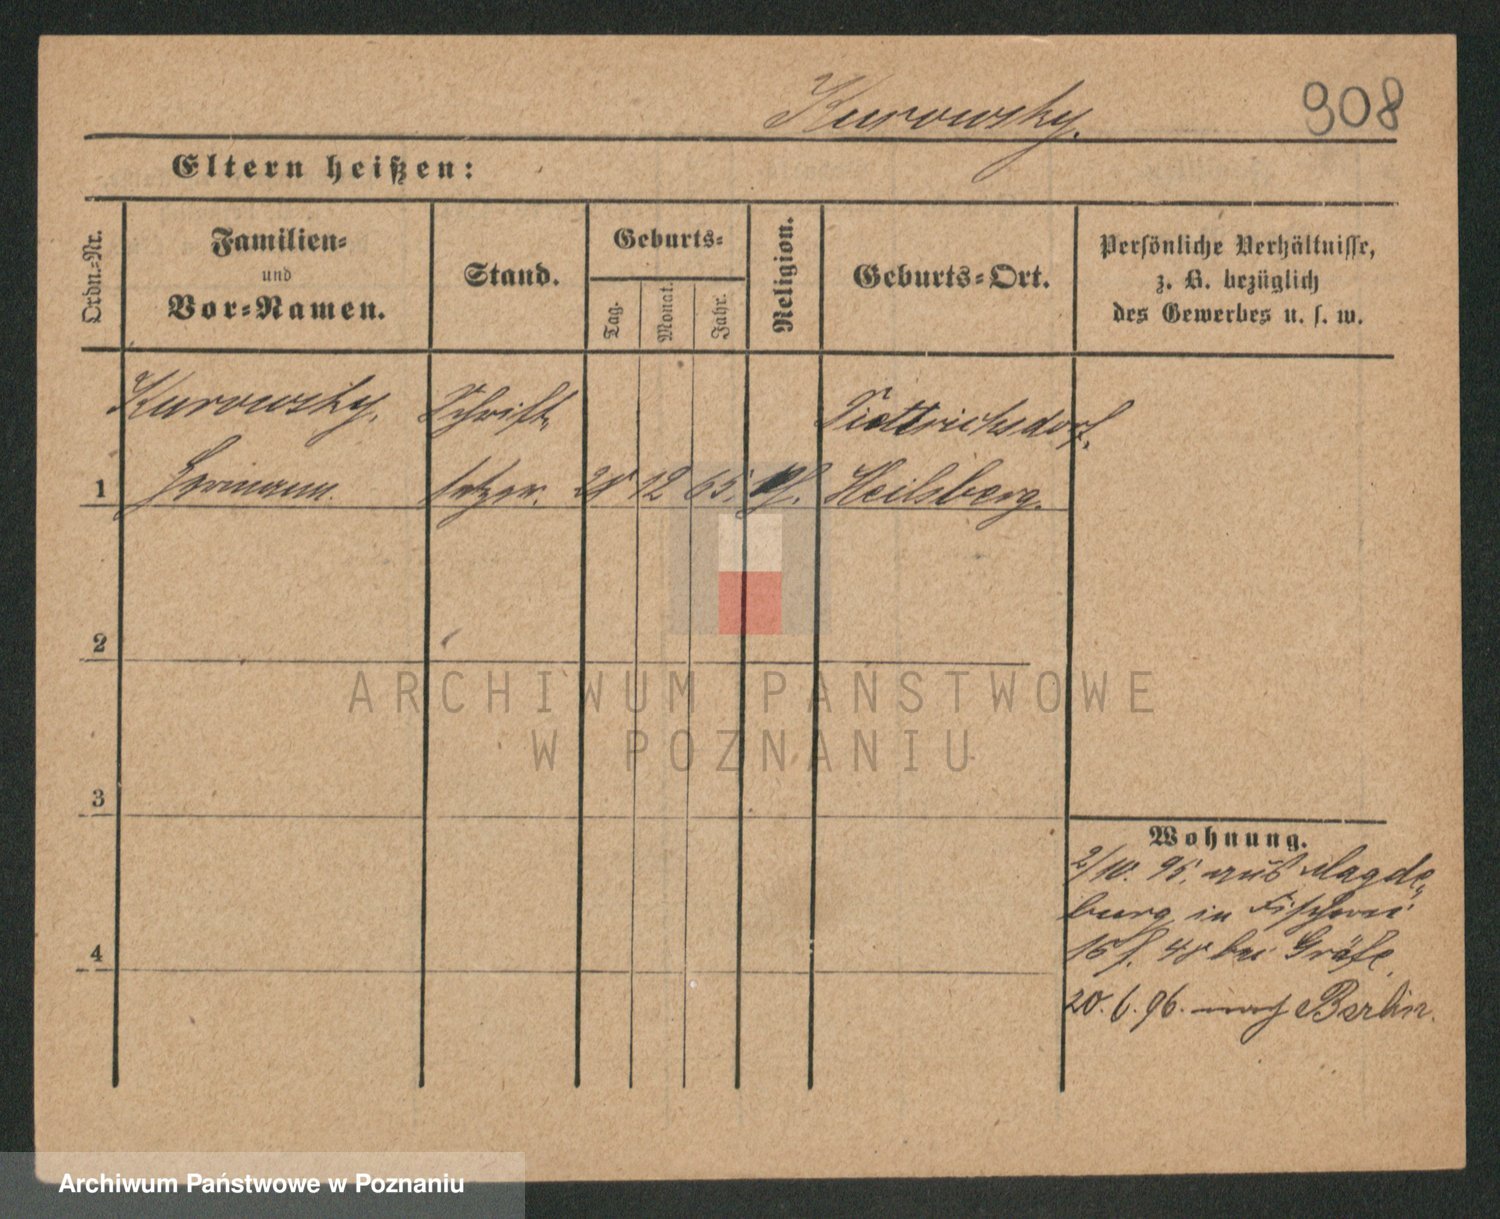 Kurowsky.
908
Eltern heißen:
Ordn.-Nr.
Familien-
und
Vor-Namen.
Stand.
Geburts-
Tag.
Monat.
Jahr.
Religion.
Geburts-Ort.
Persönliche Verhältnisse,
z. B. bezüglich
des Gewerbes u. s. w.
Kurowsky, Schrift-
1 Hermann. setzer. 12 65. Heilsberg.
2
3
4
Wohnung.
2/10. 95. aus Magde-
burg in Fischerei
bei Gräfe.
20. 6. 96. nach Berlin.
ARCHIWUM PAŃSTWOWE
W POZNANIU
Archiwum Państwowe w Poznaniu